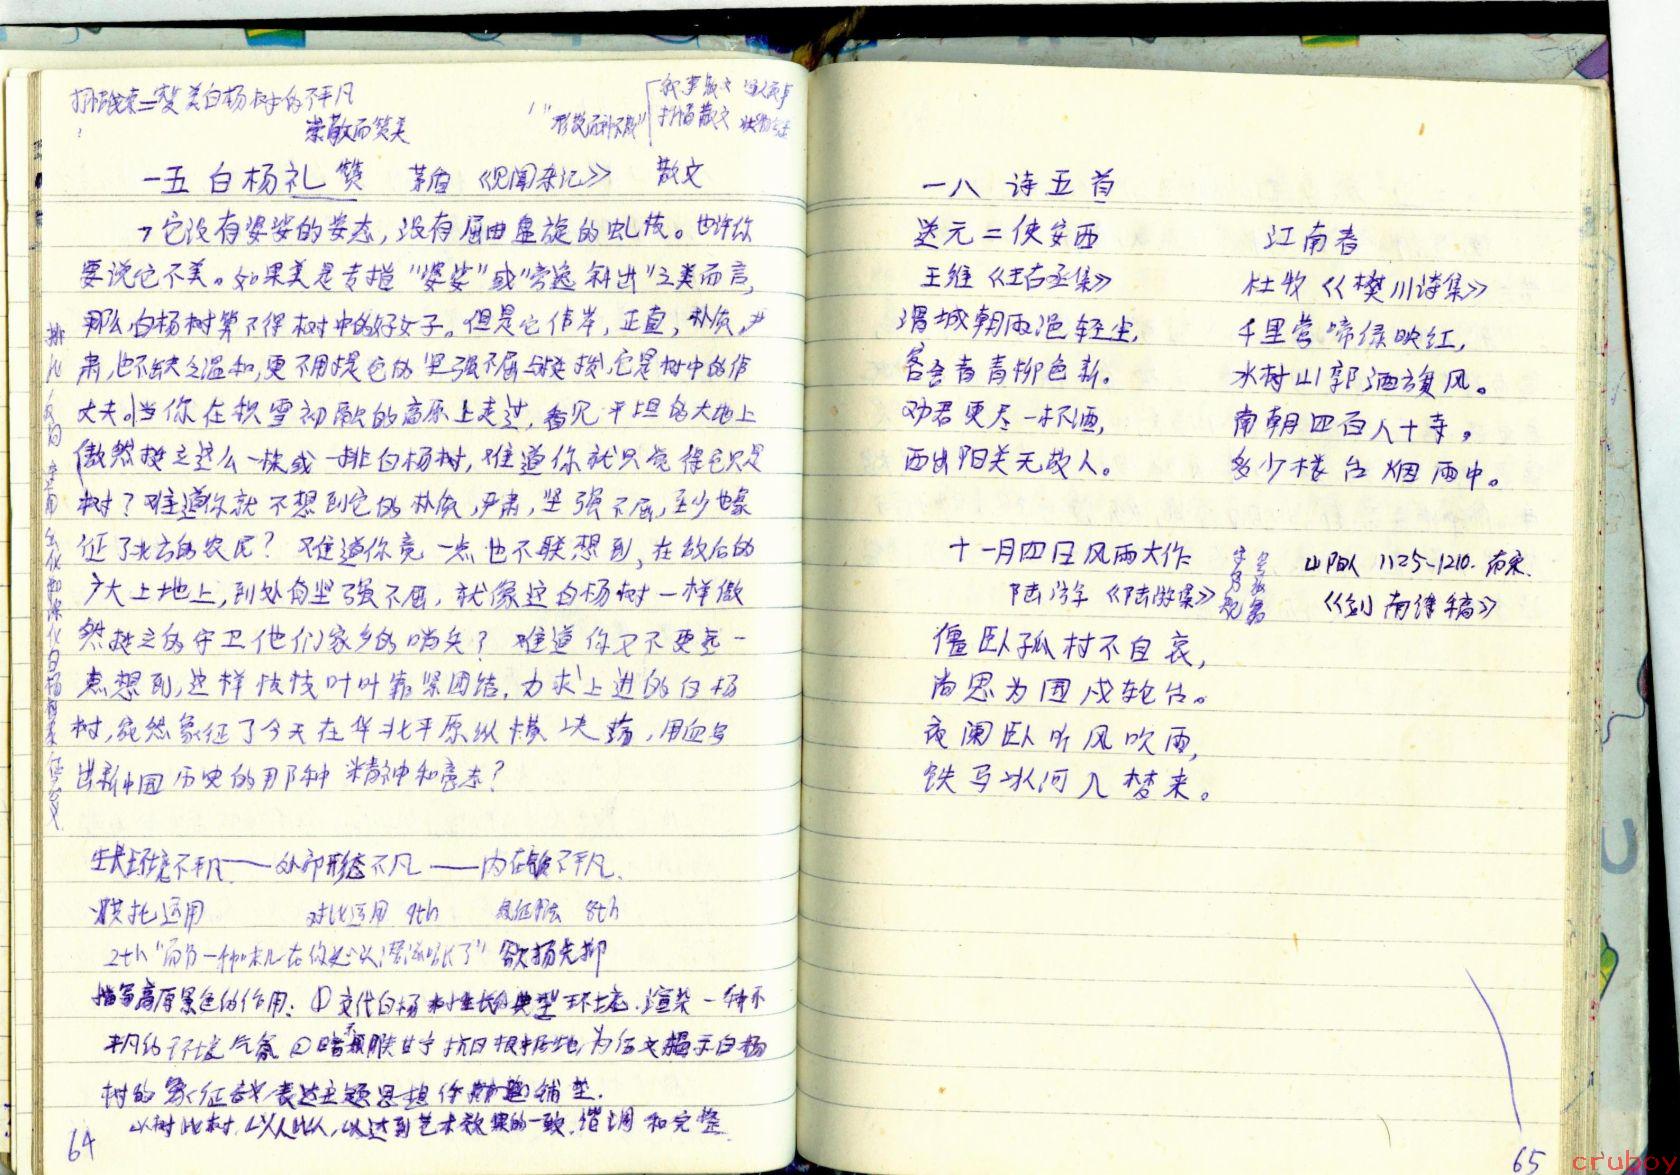 赞美白杨树的不平凡
崇敬而赞美
"形散而神不散"
叙事散文
抒情散文
一五 白杨礼赞 茅盾 《见闻杂记》 散文
它没有婆娑的姿态，没有屈曲盘旋的虬枝。也许你
要说它不美。如果美是专指"婆娑"或"旁逸斜出"之类而言，
那么，白杨树算不得树中的好女子。但是它伟岸，正直，朴质，严
肃，也不缺乏温和，更不用提它的坚强不屈与挺拔，它是树中的伟
丈夫。当你在积雪初融的高原上走过，看见平坦的大地上
傲然挺立这么一株或一排白杨树，难道你就只觉得它只是
树？难道你就不想到它的朴质，严肃，坚强不屈，至少也象
征了北方的农民？难道你竟一点也不联想到，在敌后的
广大土地上，到处有坚强不屈，就像这白杨树一样傲
然挺立的守卫他们家乡的哨兵？难道你又不更远一
点想到，这样枝枝叶叶靠紧团结，力求上进的白杨
树，宛然象征了今天在华北平原纵横决荡，用血写
出新中国历史的那种精神和意志？
生长环境不平凡——外部形态不凡——内在气质不平凡.
烘托运用 对比运用 9th 象征手法 8th
2th 欲扬先抑
描写高原景色的作用：①交代白杨树生长的典型环境，渲染一种不
平凡的环境气氛 ②暗示陕甘宁抗日根据地，为后文揭示白杨
树的象征意义表达主题思想作铺垫.
以树比树，以人比人，以达到艺术效果的一致，谐调和完整
64
一八 诗五首
送元二使安西
王维 《王右丞集》
渭城朝雨浥轻尘，
客舍青青柳色新。
劝君更尽一杯酒，
西出阳关无故人。
江南春
杜牧 《樊川诗集》
千里莺啼绿映红，
水村山郭酒旗风。
南朝四百八十寺，
多少楼台烟雨中。
十一月四日风雨大作
陆游 《陆游集》
山阴人 1125-1210. 南宋.
《剑南诗稿》
僵卧孤村不自哀，
尚思为国戍轮台。
夜阑卧听风吹雨，
铁马冰河入梦来。
65
cruboy